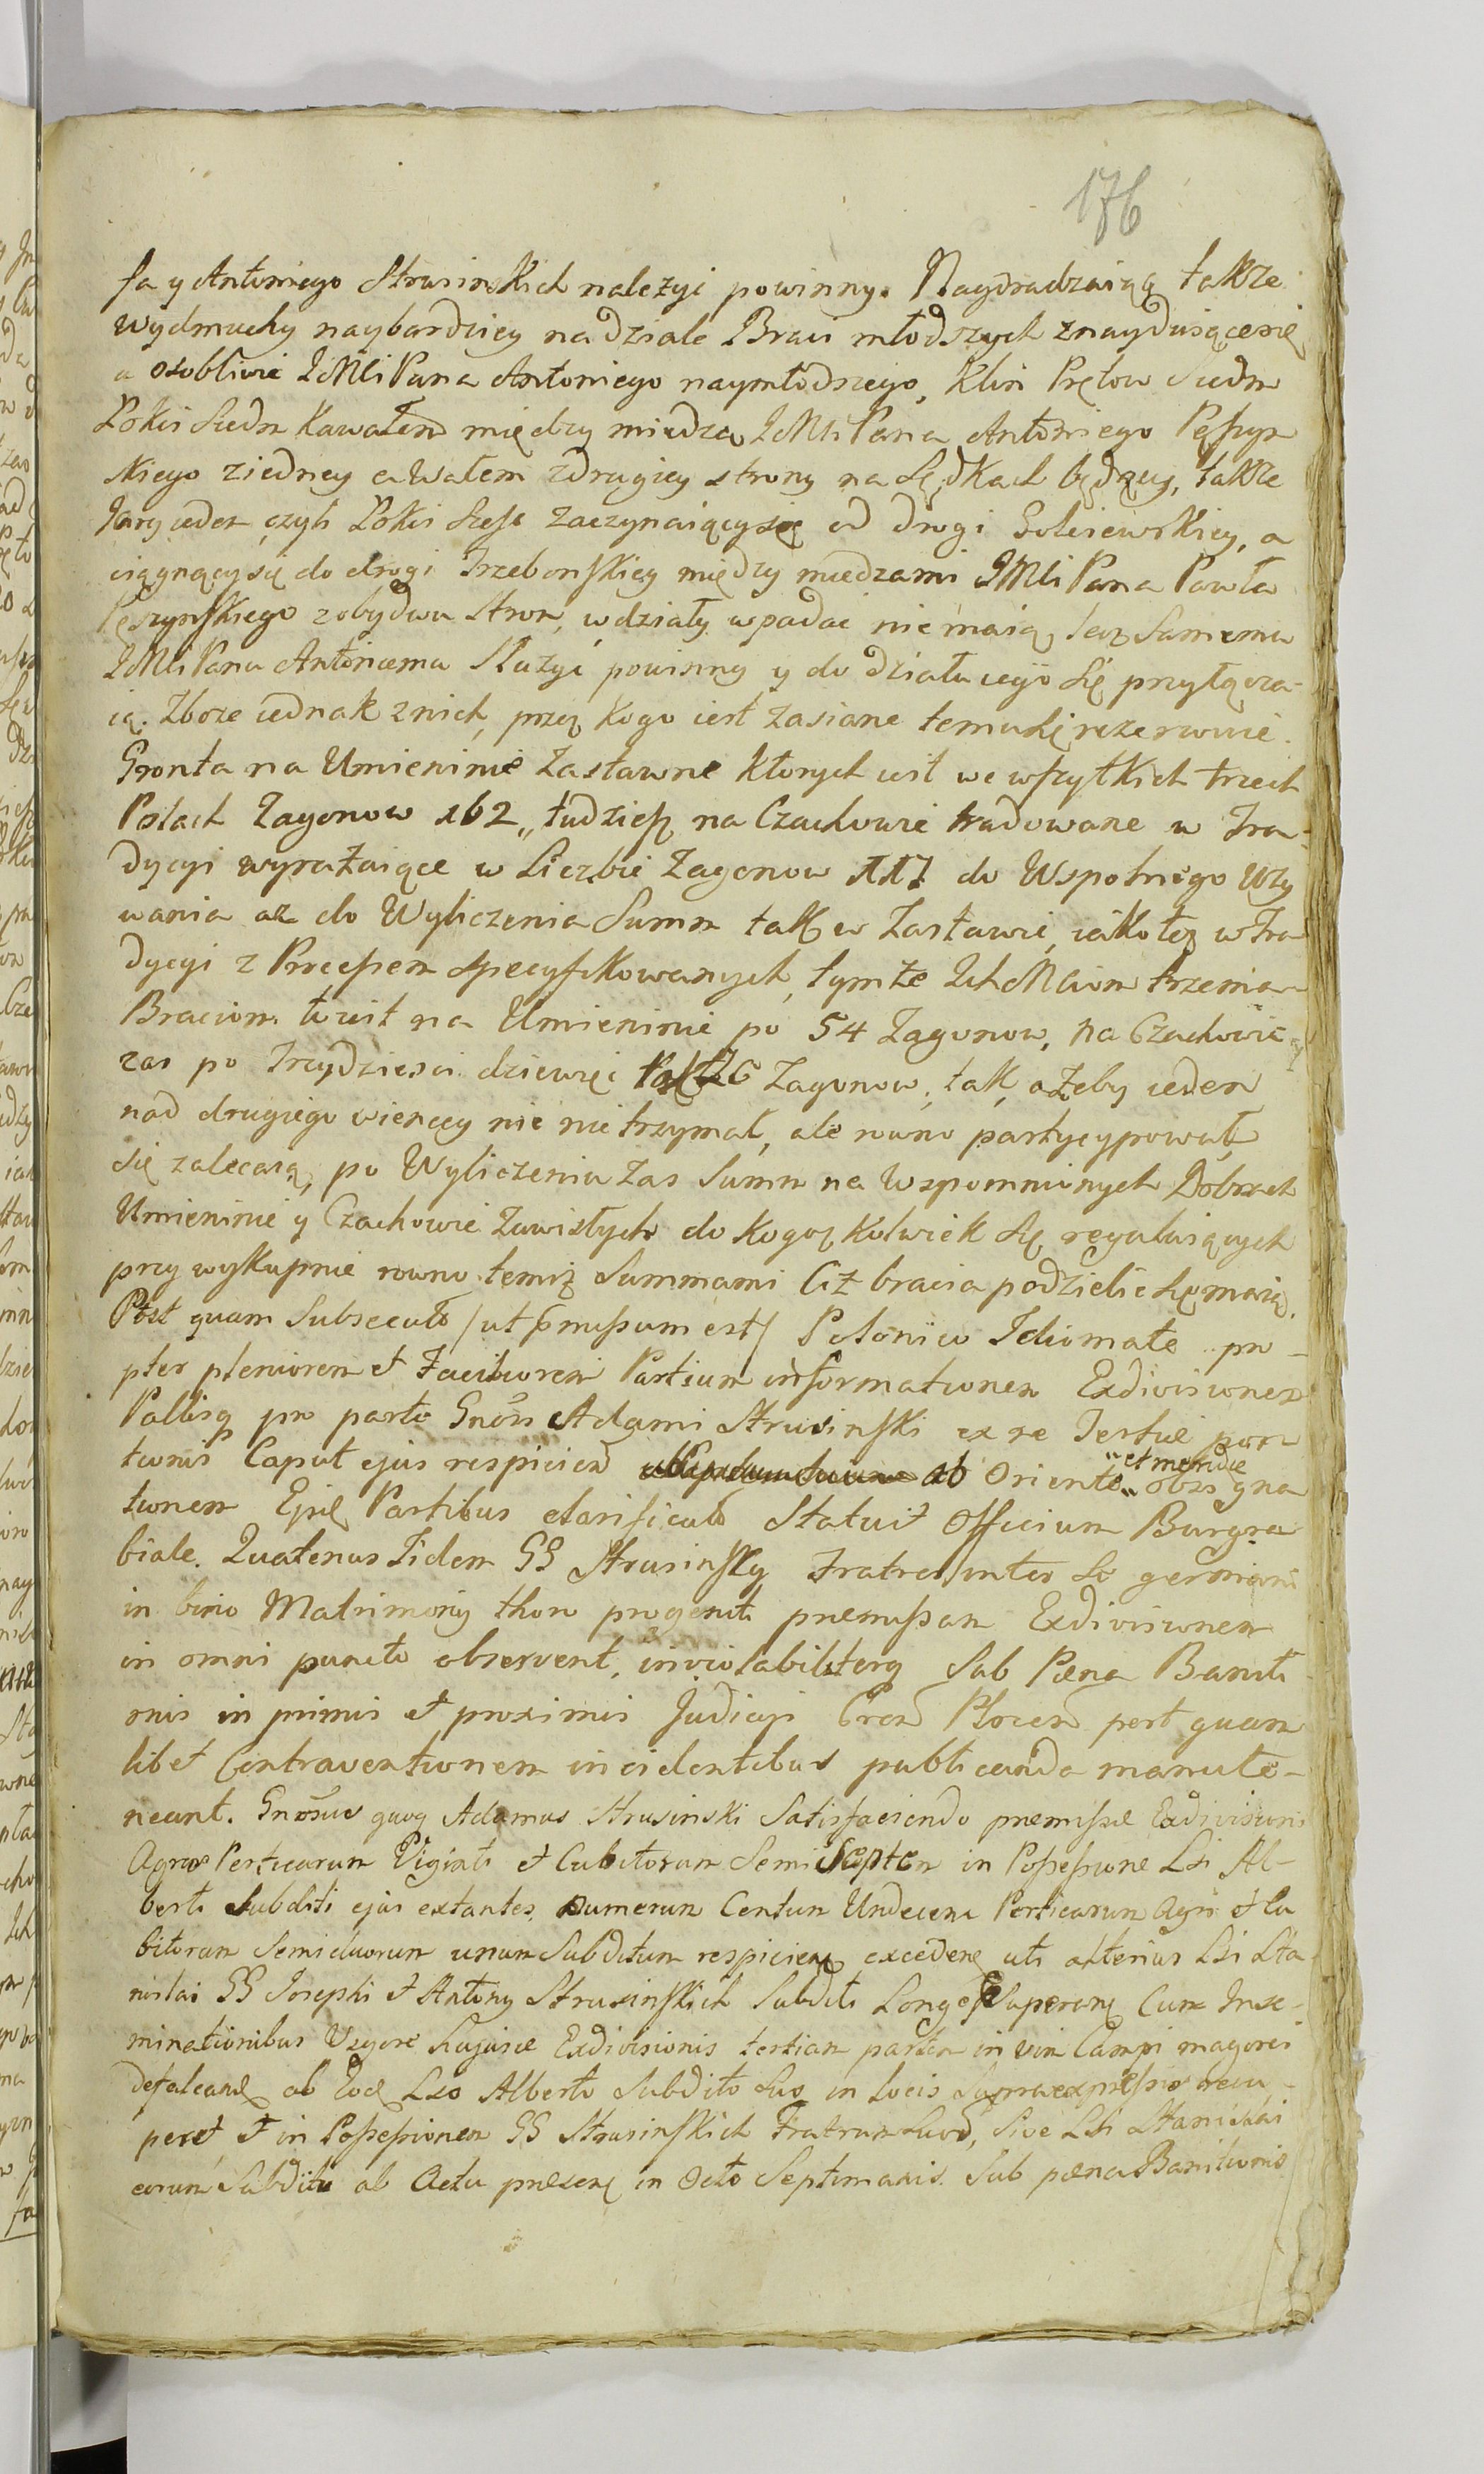 176
fa y Antoniego Strusinskich należyć powinny. Nagdradzaiąą także
wydmuchy naybardziey na dziale Braci młodszych znayduiące się
a osobliwie JMći Pana Antoniego naymłodszego, Klin Prętow Siedm
Łokci Siedm Kawałem między miedzą JMći Pana Antoniego Pęszyn
skiego ziedney a Wałem zdrugiey strony na Łędkach będący, także
Jary ieden czyli Łokci Szesc zaczynaiący się od drogi Goleiewskiey, a
ciągnący się do drogi Trzebonskiey między miedzami JMći Pana Pawła
Pęszynskiego zobydwu Stron, w działy wpadać nie maią, lecz Samemu
JMći Panu Antoniemu Służyć powinny y do działu iego Się przyłącza-
ią. Zboże iednak znich, przez kogo iest zasiane temu Się rezerwuie.
Gronta na Umieninie Zastawne Ktorych iest we wszytkich trzech
Polach Zagonow 162 „ tudziesz na Czachowie tradowane w Tra-
dycyi wyrażaiące w Liczbie Zagonow 117 do Wspolnego Uży
wania aż do Wyliczenia Summ tak w Zastawie, iako też w Tra
dycyi z Procesem specyfikowanych, tymże Ich Mciom trzema
Braciom to iest na Umieninie po 54 Zagonow, na Czachowie
zas po Trzydziesci dziewięć Zagonow, tak, ażeby ieden
nad drugiego wiencey nic nie trzymał, ale rowno partycypował
się zalecaią, po Wyliczeniu zas Summ na Wspomnionych Dobrach
Umieninie y Czachowie Zawisłych do kogoż kolwiek Się reguluiących
przy wykupnie rowno temiż Summami Ciż bracia podzielic Się maią.
Post quam Subsecuto /ut pmissum est/ Polonico Idiomate pro-
pter pleniorem et Faciliorem Partium informationem Exdivisionem
Pallisq pro parte Gnōsi Adami Strusinski ex re Testuc por
tionis Caput ejus respicien ab Oriente „et meridie„ obsigna
tionem Ejus Partibus clarificato Statuit Officium Burgra
biale. Quatenus Iidem GG Strusinscy Fratres inter Se germani
in bino Matrimonij thoro progeniti præmissam Exdivisionem
in omni puncto observent, inviolabiliterq Sub Pæna Baniti-
onis in primis et proximis Judicijs Cren Plocen post quam
libet Contraventionem incidentibus publicanda manute-
neant. Gnōsus quoq Adamus Strusinski Satisfaciendo præmissæ Exdivisioni
Agros Perticarum Viginti et Cubitorum Semi Septem in Possessione Lsi Al-
berti Subditi ejus extantes numerum Centum Undecem Perticarum Agri et Cu
bitorum Semiduorum unum Subditum respicien exceden uti alterius Lsi Sta-
nislai GG Josephi et Antony Strusinskich Subditi Longe Superan Cum Inse-
minationibus Vigore hujusce Exdivisionis tertiam partem in vim Campi magorei
defalcan ab Eod Lso Alberto Subdito Suo in locis Supraexpressis recu-
peret et in Possessionem GG Strusinskich Fratrum Suor, Sive Lsi Stanislai
eorum Subditi ab Actu præsen in Octo Septimanis Sub pæna Banitionis